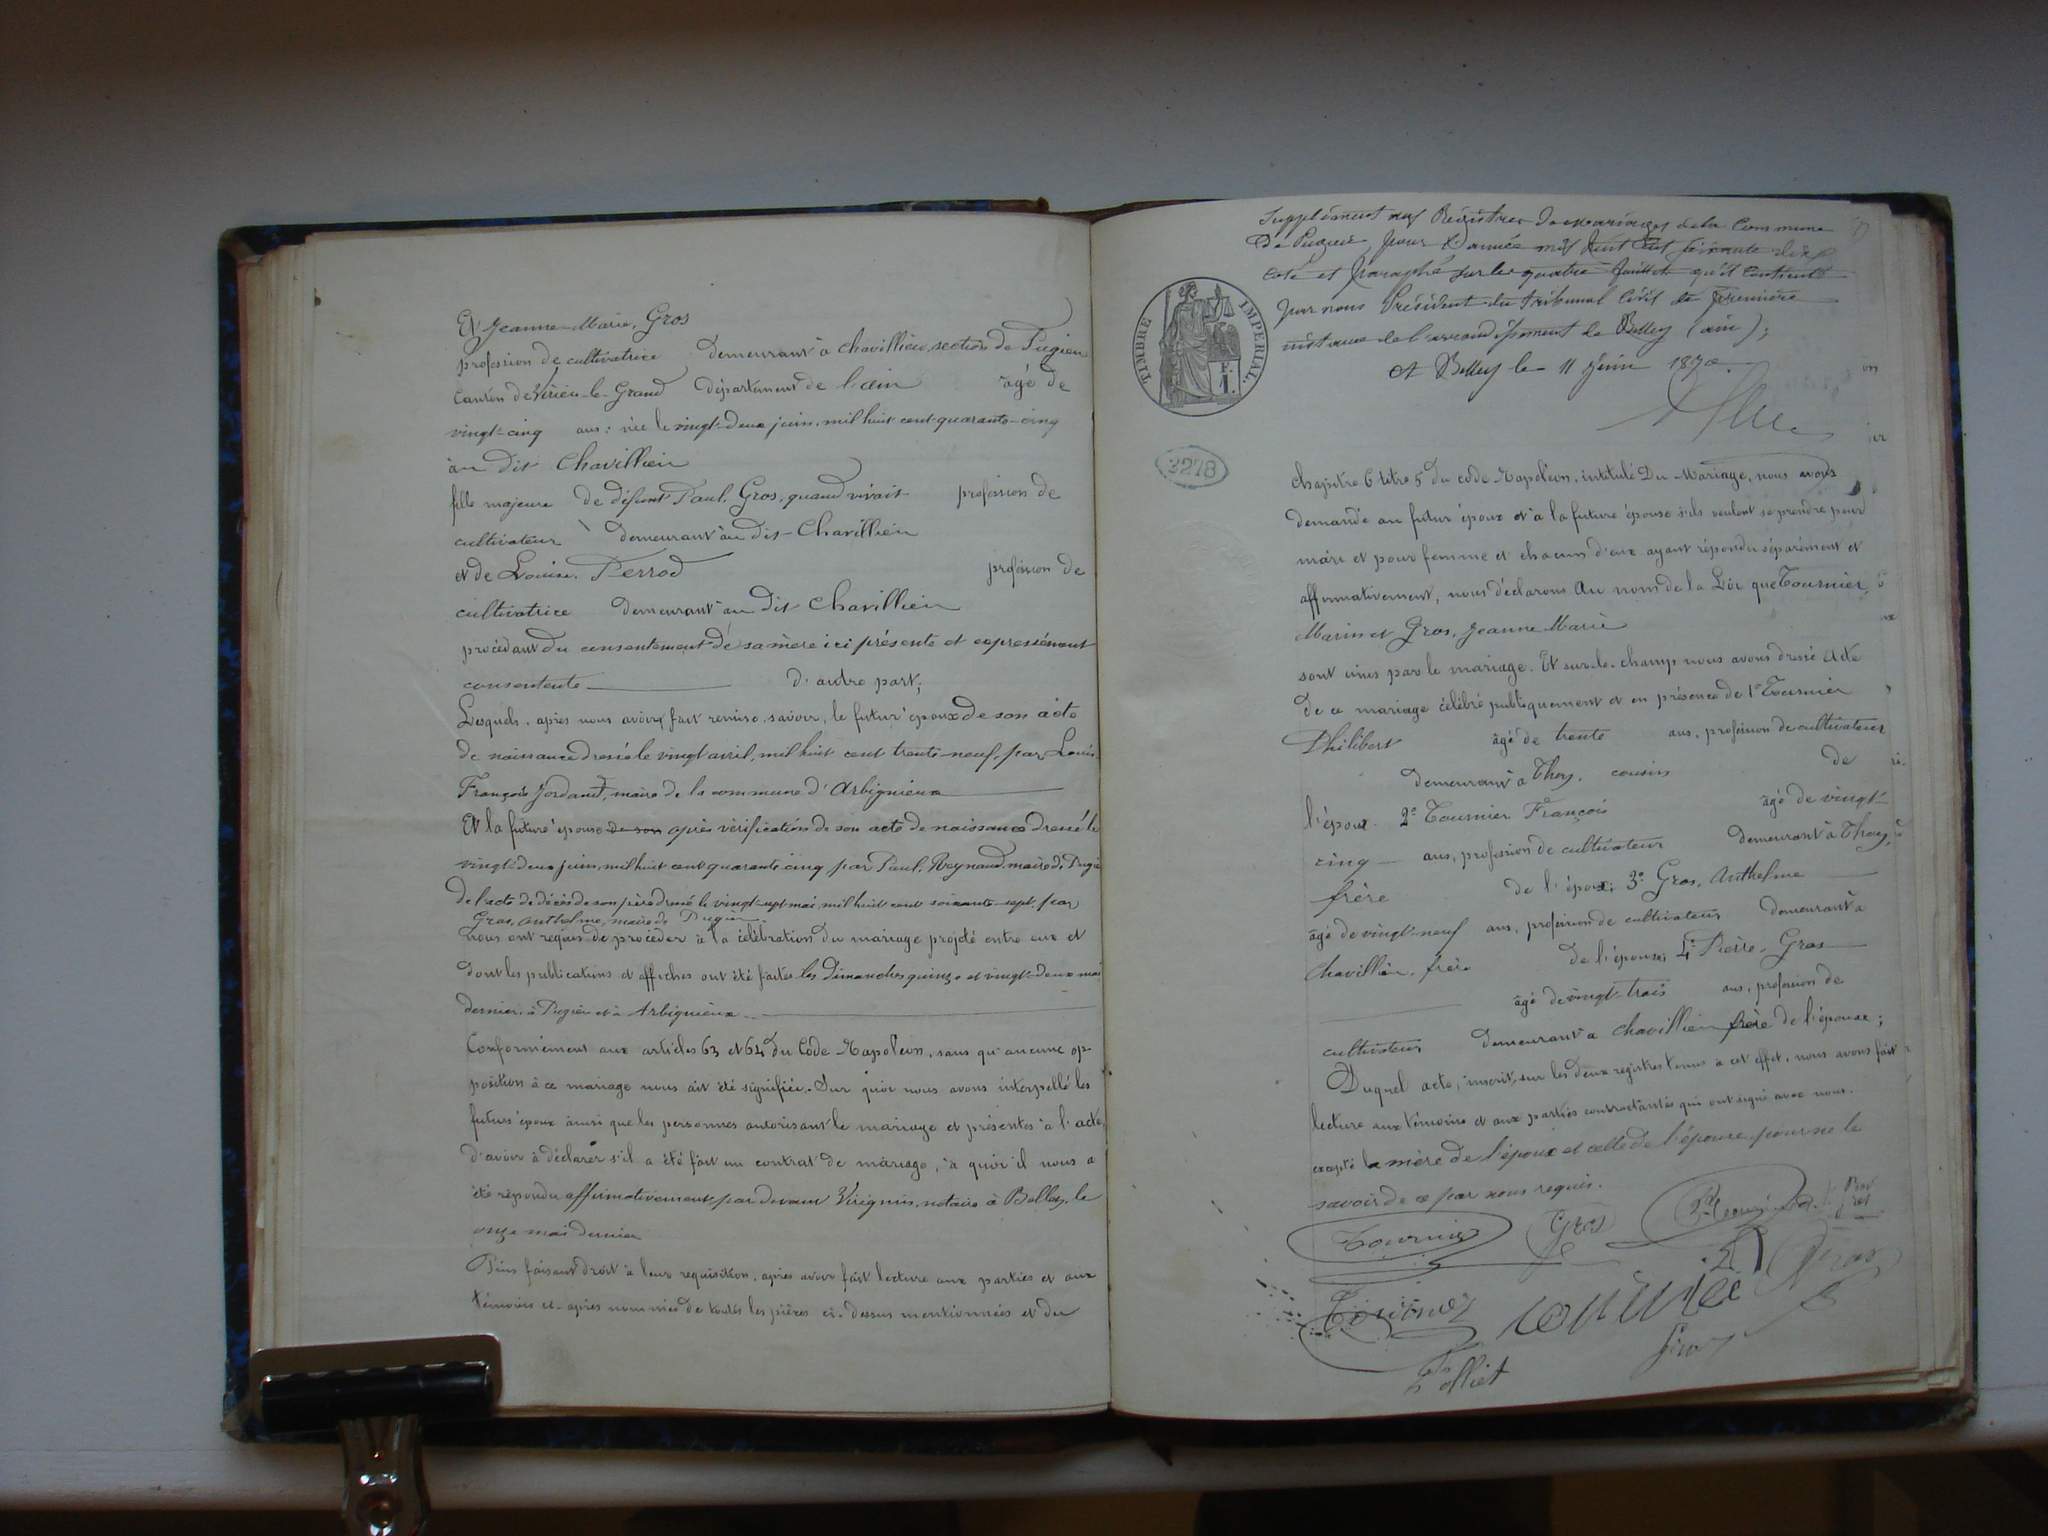 Et Jeanne-Marie, Gros
profession de cultivatrice demeurant à Chavillieu, section de Pugieu
canton de Virieu-le-Grand département de l'ain âgé de
vingt-cinq ans: née le vingt-deux juin, mil huit cent quarante-cinq
au dit Chavillieu
fille majeure de défunt Paul, Gros, quand vivait profession de
cultivateur demeurant au dit-Chavillieu
et de Louise, Perrod profession de
cultivatrice demeurant au dit Chavillieu
procédant du consentement de sa mère ici présente et expressément
consentente d'autre part;
Lesquels, après nous avoir fait remise, savoir, le futur époux de son acte
de naissance dressé le vingt avril, mil huit cent trente-neuf, par Louis
François Jordanet, maire de la commune d'Arbignieux
Et la future épouse de son après vérification de son acte de naissance dressé le
vingt-deux juin, mil huit cent quarante cinq par Paul, Reynaud maire de Pugieu
De l'acte de décès de son père dressé le vingt-sept mai, mil huit cent soixante-sept, par
Gros, Anthelme, maire de Pugieu
nous ont requis de procéder à la célébration du mariage projeté entre eux et
dont les publications et affiches ont été faites les Dimanches quinze et vingt-deux mai
dernier, à Pugieu et à Arbignieux
Conformément aux articles 63 et 64 du Code Napoléon, sans qu'aucune op-
position à ce mariage nous ait été signifiée. Sur quoi nous avons interpellé les
futurs époux ainsi que les personnes autorisant le mariage et présentes à l'acte,
d'avoir à déclarer s'il a été fait un contrat de mariage, à quoi il nous a
été répondu affirmativement par devant notaire à Belley, le
onze mai dernier
Puis faisant droit à leur requisition, après avoir fait lecture aux parties et aux
témoins ci-après nommés de toutes les pièces ci-dessus mentionnées et du
Supplément aux Registres de mariages de la Commune
De Pugieu pour l'année mil huit cent soixante dix
coté et paraphé sur les quatre feuillets qu'il contient
par nous Président du tribunal Civil de première
instance de l'arrondissement de Belley (ain);
A Belley le 11 juin 1870
TIMBRE IMPERIAL.
1 F.
3278
chapitre 6 titre 5 du code Napoléon, intitulé Du Mariage, nous avons
demandé au futur époux et à la future épouse s'ils veulent se prendre pour
mari et pour femme et chacun d'eux ayant répondu séparément et
affirmativement, nous déclarons Au nom de la Loi que Tournier,
Marin et Gros, Jeanne Marie
sont unis par le mariage. Et sur-le-champ nous avons dressé acte
de ce mariage célébré publiquement et en présence de 1° Tournier
Philibert âgé de trente ans, profession de cultivateur
demeurant à Thoy, cousin de
l'époux 2° Tournier François âgé de vingt-
cinq ans, profession de cultivateur demeurant à Thoy,
frère de l'époux; 3° Gros, Anthelme
âgé de vingt-neuf ans, profession de cultivateur demeurant à
Chavillieu, frère de l'épouse, 4° Pierre, Gros
âgé de vingt-trois ans, profession de
cultivateur demeurant a Chavillieu frère de l'épouse;
Duquel acte, inscrit sur les deux registres tenus à cet effet, nous avons fait
lecture aux témoins et aux parties contractantes qui ont signé avec nous.
excepté la mère de l'époux et celle de l'épouse pour ne le
savoir de ce par nous requis.
Tournier Gros
Gros
Tournier
Tolliet